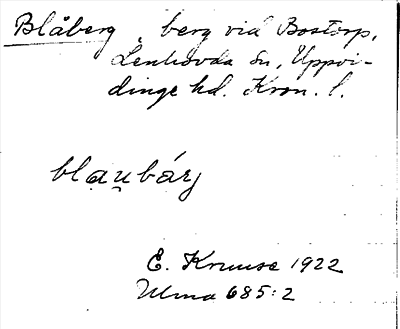 Blåberg, berg vid Bostorp,
Lenhovda sn, Uppvi-
dinge hd. Kron. l.
blau̯bárj
E. Kruuse 1922
Ulma 685:2